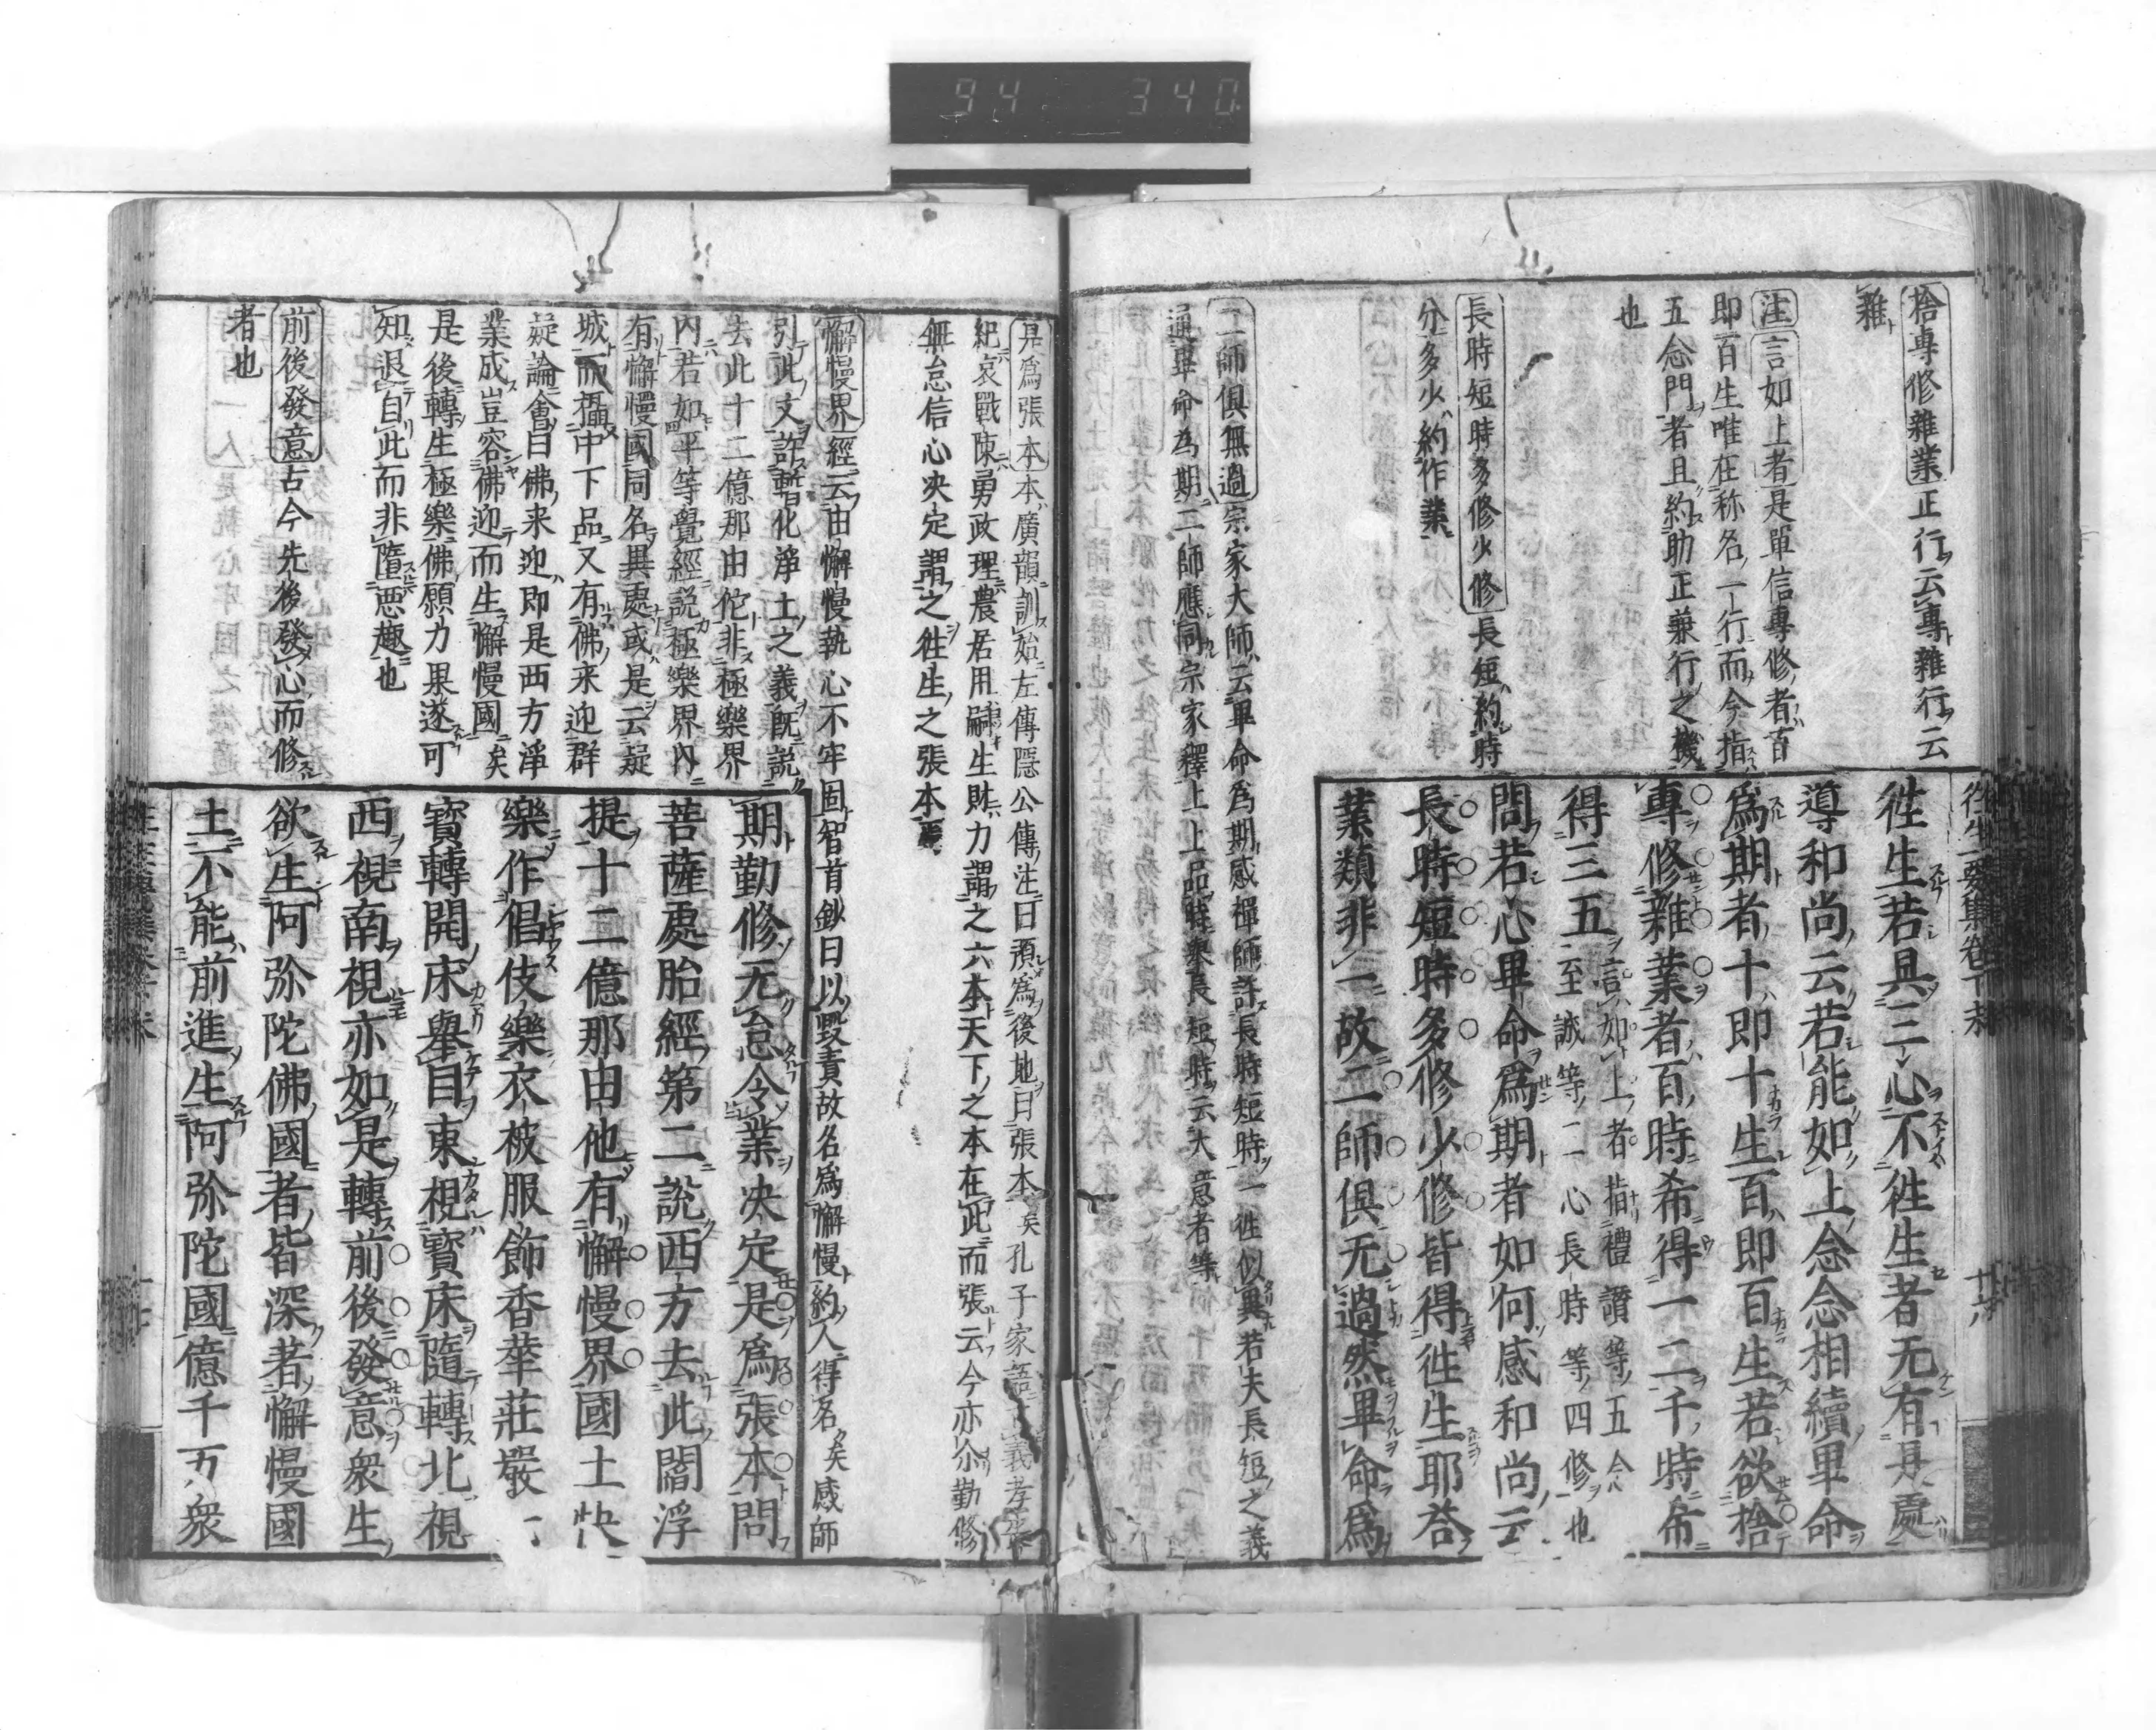 94 340
捨專修雜業正行云專雜行云
雜
注言如上者是單信專修者百
即百生唯在称名一行而今指
五念門者且約助正兼行之機
也
長時短時多修少修長短約時
分多少約作業
二師俱無過宗家大師云畢命爲期感禪師許長時短時一徃似異若夫長短之義
通畢命為期二師應同宗家釋上上品時衆長短時云大意者等
往生要集卷下末
徃生若具三心不徃生者无有是處
導和尚云若能如上念念相續畢命
爲期者十即十生百即百生若欲捨
專修雜業者百時希得一二千時希
得三五言如上者指禮讚等五念
至誠等二心長時等四修也
問若心畢命爲期者如何感和尚云
長時短時多修少修皆得徃生耶荅
業類非一故二師俱无過然畢命爲
是爲張本本廣韻訓始左傳隱公傳注曰預爲後地曰張本矣孔子家語正義
紀哀戰陳勇政理農居用嗣生財力謂之六本天下之本在此而張云今亦尒勤修
無怠信心决定謂之徃生之張本
懈慢界經云由懈慢執心不牢固智首鈔曰以毀責故名爲懈慢約人得名矣感師
引此文許暫化淨土之義既説
去此十二億那由佗非極樂界
内若如平等覺經説極樂界内
有懈慢國同名異處或是云疑
城而攝中下品又有佛来迎群
疑論會曰佛来迎即是西方淨
業成豈容佛迎而生懈慢國矣
是後轉生極樂佛願力果遂可
知退自此而非墮悪趣也
前後發意古今先後發心而修
者也
期勤修无怠令業决定是爲張本問
菩薩處胎經第二説西方去此閻浮
提十二億那由他有懈慢界國土快
樂作倡伎樂衣被服飾香華莊嚴七
寳轉開床舉目東視寳床隨轉北視
西視南視亦如是轉前後發意衆生
欲生阿弥陀佛國者皆深著懈慢國
土不能前進生阿弥陀國億千万衆